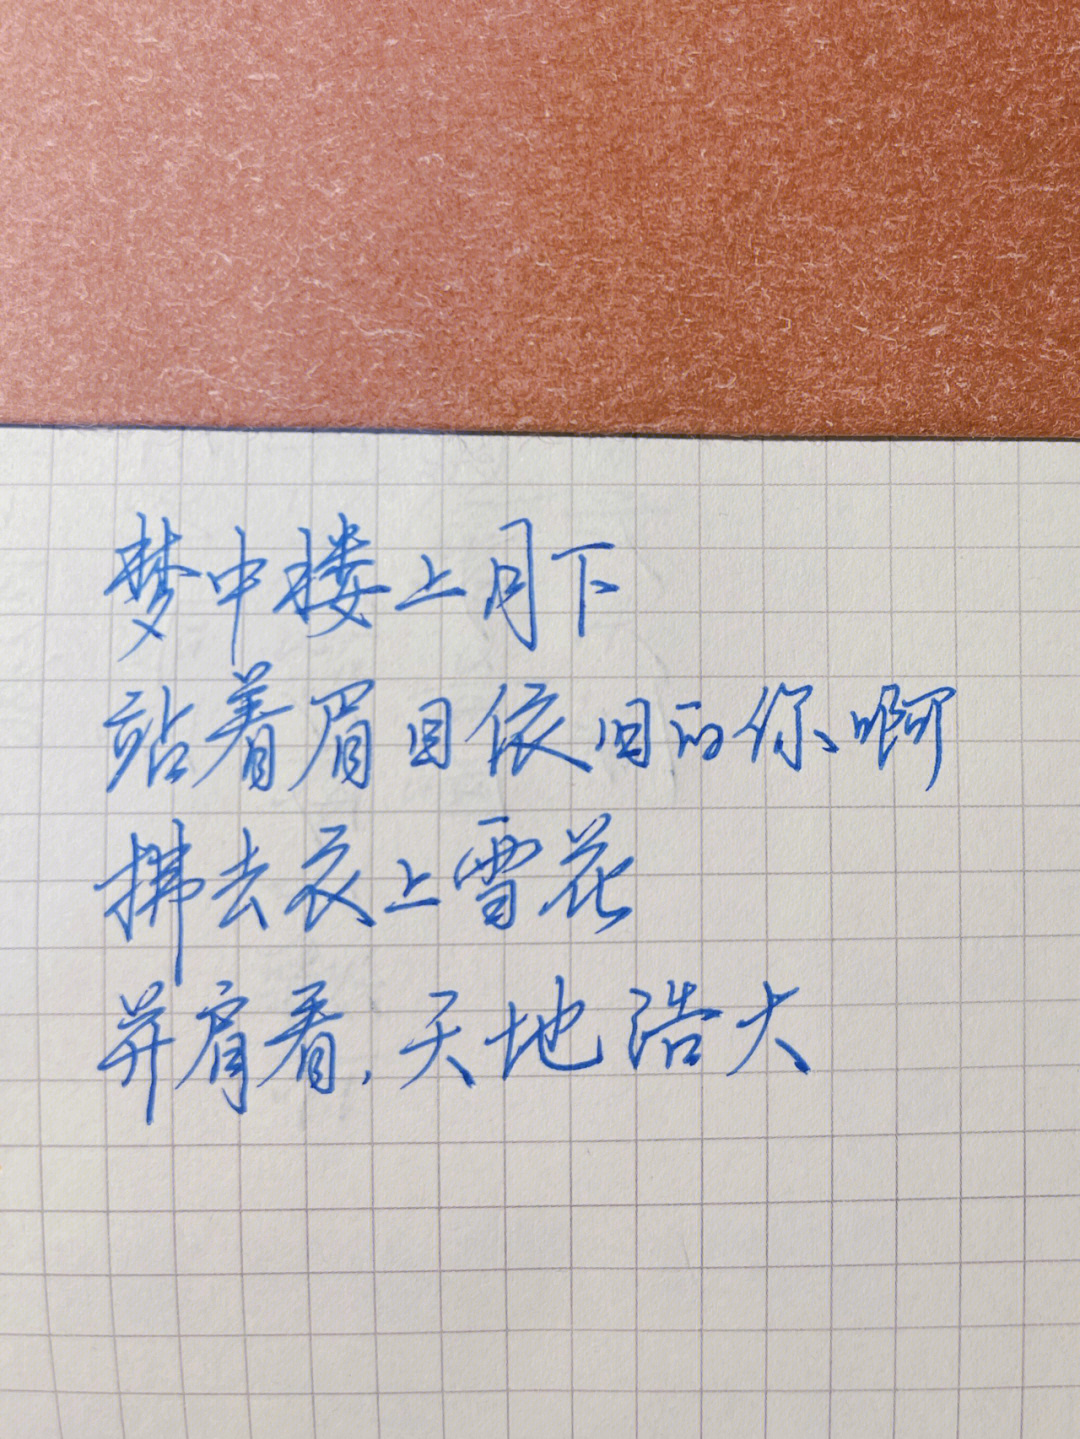 梦中楼上月下
站着眉目依旧的你啊
拂去衣上雪花
并肩看，天地浩大